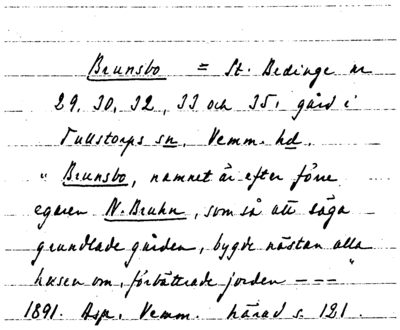 Brunsbo = St. Bedinge nr
29, 30, 32, 33 och 35, gård i
Tullstorps sn, Vemm. hd.
"Brunsbo, namnet är efter förre
egaren N. Bruhn, som så att säga
grundlade gården, bygde nästan alla
husen om, förbättrade jorden ---"
1891. Asp, Vemm. härad s. 121.